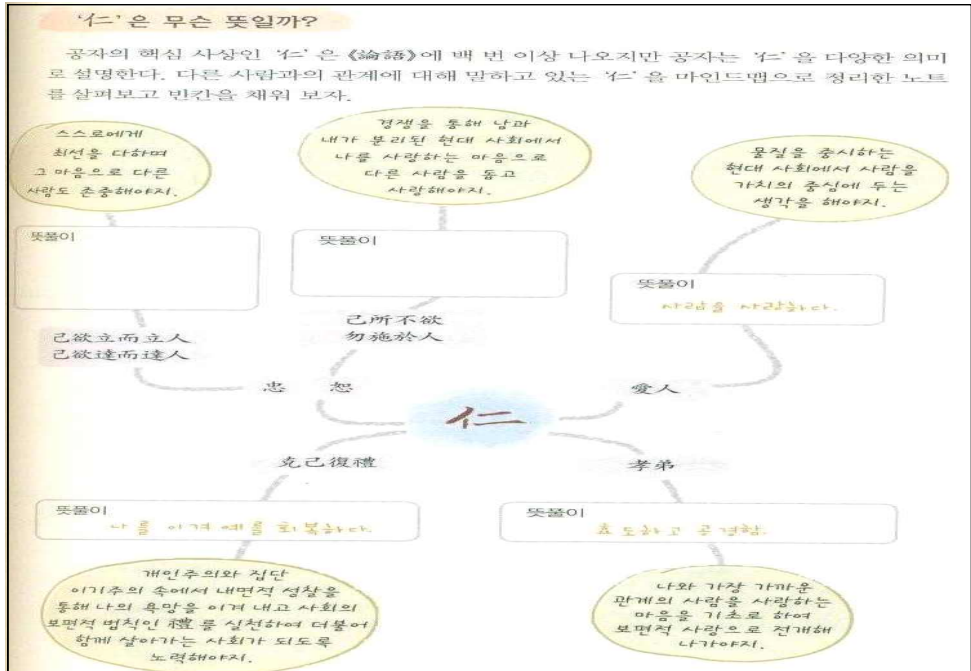 ‘仁’은 무슨 뜻일까?
공자의 핵심 사상인 ‘仁’은 《論語》에 백 번 이상 나오지만 공자는 ‘仁’을 다양한 의미
로 설명한다. 다른 사람과의 관계에 대해 말하고 있는 ‘仁’을 마인드맵으로 정리한 노트
를 살펴보고 빈칸을 채워 보자.
스스로에게
최선을 다하며
그 마음으로 다른
사람도 존중해야지.
경쟁을 통해 남과
내가 분리된 현대 사회에서
나를 사랑하는 마음으로
다른 사람을 돕고
사랑해야지.
물질을 중시하는
현대 사회에서 사람을
가치의 중심에 두는
생각을 해야지.
뜻풀이
뜻풀이
뜻풀이
사람을 사랑하다.
己欲立而立人
己欲達而達人
己所不欲
勿施於人
忠 恕
愛人
仁
克己復禮
孝弟
뜻풀이
나를 이겨 예를 회복하다.
뜻풀이
효도하고 공경함.
개인주의와 집단
이기주의 속에서 내면적 성찰을
통해 나의 욕망을 이겨 내고 사회의
보편적 법칙인 禮를 실천하여 더불어
함께 살아가는 사회가 되도록
노력해야지.
나와 가장 가까운
관계의 사람을 사랑하는
마음을 기초로 하여
보편적 사랑으로 전개해
나가야지.